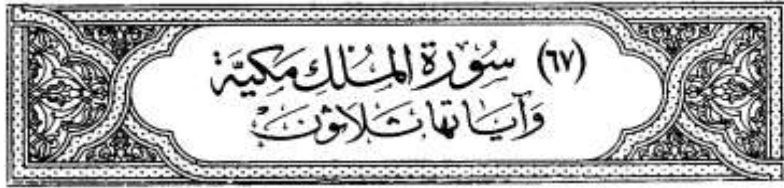 (٦٧) سُورَة المُلكِ مَكيَّة
وَآيَاتهَا ثَلَاثُونَ